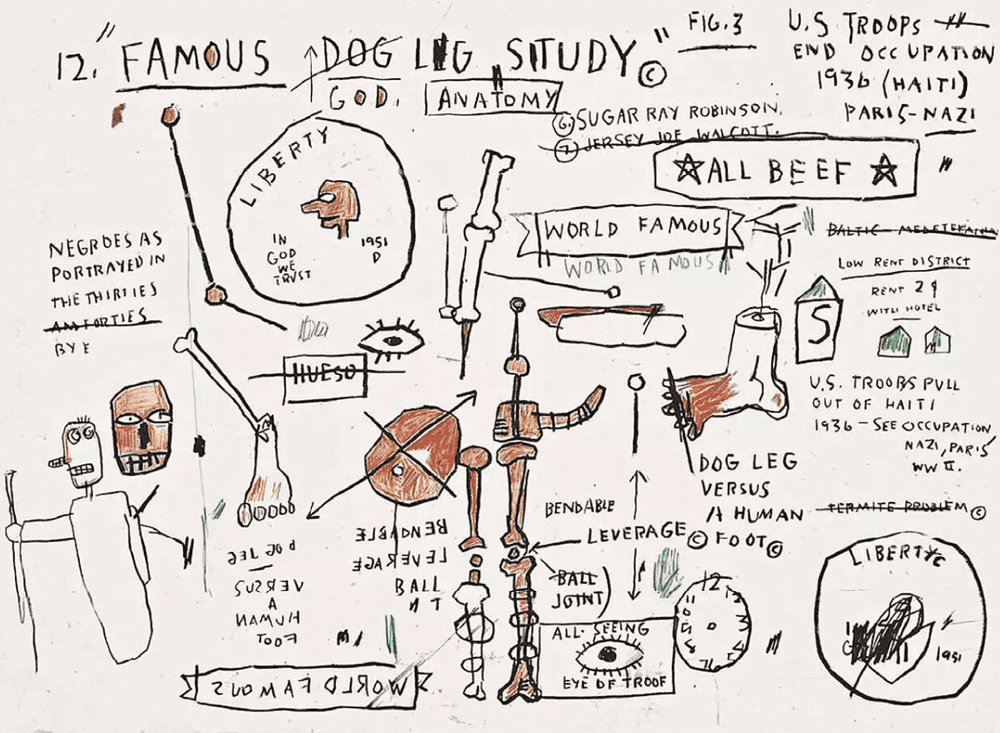 12. "FAMOUS DOG LEG STUDY" ©
FIG.3
GOD.
ANATOMY
U.S. TROOPS
END OCCUPATION
1936 (HAITI)
PARIS-NAZI
6. SUGAR RAY ROBINSON.
7. JERSEY JOE WALCOTT.
ALL BEEF
LIBERTY
IN
GOD
WE
TRUST
1951
D
WORLD FAMOUS
WORLD FAMOUS
BALTIC - MEDETERAINA
LOW RENT DISTRICT
RENT 2$
WITH HOTEL
S
NEGROES AS
PORTRAYED IN
THE THIRTIES
AN FORTIES
BY E
HUESO
U.S. TROOPS PULL
OUT OF HAITI
1936 - SEE OCCUPATION
NAZI, PARIS
WW II.
DOG LEG
VERSUS
A HUMAN
FOOT ©
TERMITE PROBLEM ©
BENDABLE
LEVERAGE ©
BALL
JOINT
BENDABLE
LEVERAGE
BALL
N T
DOG LEG
VERSUS
A
HUMAN
FOOT
ALL SEEING
EYE OF TROOF
12
LIBERTY
1951
WORLD FAMOUS